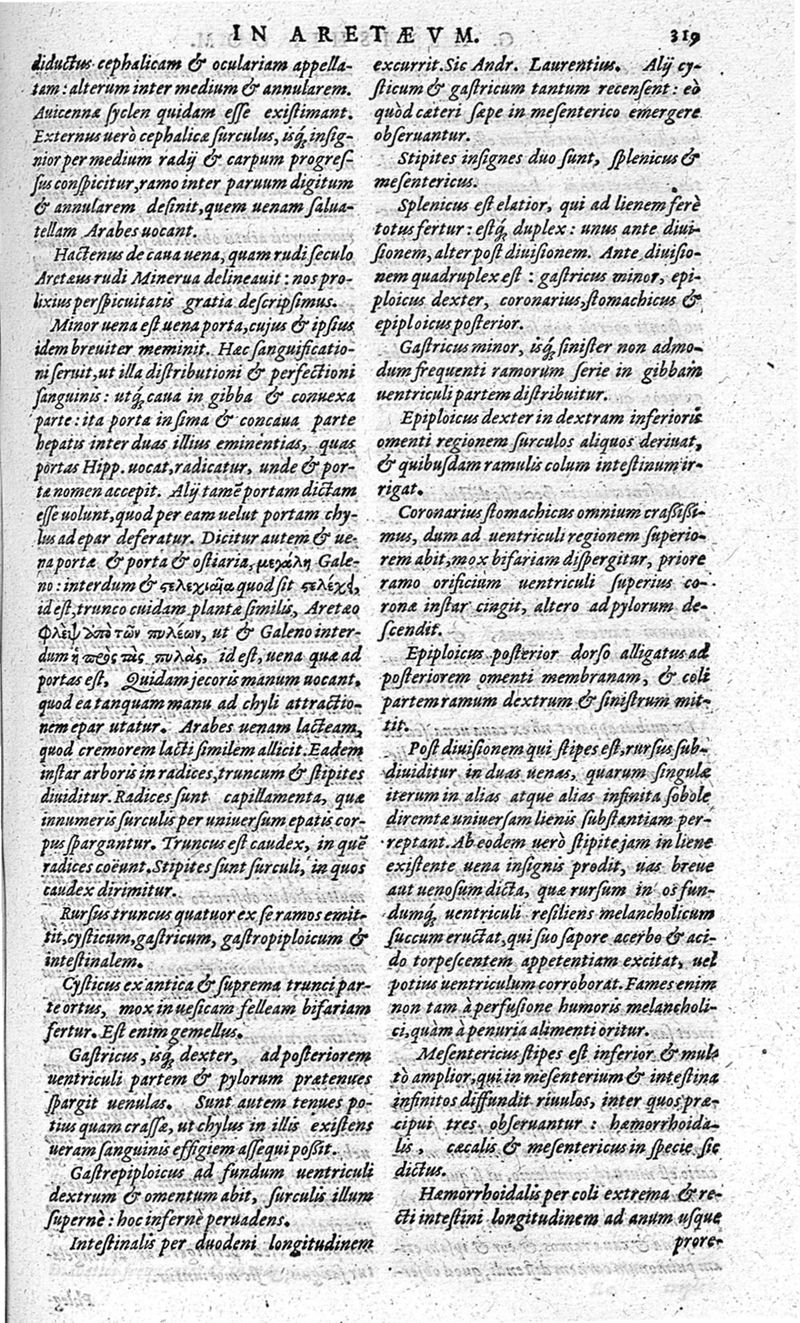 IN ARETÆVM. 319
diductus cephalicam & oculariam appella-
tam: alterum inter medium & annularem.
Auicennæ syclen quidam esse existimant.
Externus uerò cephalicæ surculus, isq́; insig-
nior per medium radij & carpum progres-
sus conspicitur, ramo inter paruum digitum
& annularem desinit, quem uenam salua-
tellam Arabes uocant.
Hactenus de caua uena, quam rudi seculo
Aretæus rudi Minerua delineauit: nos pro-
lixius perspicuitatis gratia descripsimus.
Minor uena est uena porta, cujus & ipsius
idem breuiter meminit. Hæc sanguificatio-
ni seruit, ut illa distributioni & perfectioni
sanguinis: utq́; caua in gibba & conuexa
parte: ita porta in sima & concaua parte
hepatis inter duas illius eminentias, quas
portas Hipp. uocat, radicatur, unde & por-
tæ nomen accepit. Alij tamē portam dictam
esse uolunt, quod per eam uelut portam chy-
lus ad epar deferatur. Dicitur autem & ue-
na portæ & porta & ostiaria, μεγάλη Gale-
no: interdum & στελεχιαῖα quod sit στελέχει,
id est, trunco cuidam plantæ similis, Aretæo
Φλὲψ ἀπὸ τῶν πυλέων, ut & Galeno inter-
dum ἡ πρὸς τὰς πυλὰς, id est, uena quæ ad
portas est, Quidam jecoris manum uocant,
quod ea tanquam manu ad chyli attractio-
nem epar utatur. Arabes uenam lacteam,
quod cremorem lacti similem allicit. Eadem
instar arboris in radices, truncum & stipites
diuiditur. Radices sunt capillamenta, quæ
innumeris surculis per uniuersum epatis cor-
pus sparguntur. Truncus est caudex, in quē
radices coëunt. Stipites sunt surculi, in quos
caudex dirimitur.
Rursus truncus quatuor ex se ramos emit-
tit, cysticum, gastricum, gastropiploicum &
intestinalem.
Cysticus ex antica & suprema trunci par-
te ortus, mox in uesicam felleam bifariam
fertur. Est enim gemellus.
Gastricus, isq́; dexter, ad posteriorem
uentriculi partem & pylorum prætenues
spargit uenulas. Sunt autem tenues po-
tius quam crassæ, ut chylus in illis existens
ueram sanguinis effigiem assequi possit.
Gastrepiploicus ad fundum uentriculi
dextrum & omentum abit, surculis illum
supernè: hoc infernè peruadens.
Intestinalis per duodeni longitudinem
excurrit. Sic Andr. Laurentius. Alij cy-
sticum & gastricum tantum recensent: eò
quòd cæteri sæpe in mesenterico emergere
obseruantur.
Stipites insignes duo sunt, splenicus &
mesentericus.
Splenicus est elatior, qui ad lienem ferè
totus fertur: estq́; duplex: unus ante diui-
sionem, alter post diuisionem. Ante diuisio-
nem quadruplex est: gastricus minor, epi-
ploicus dexter, coronarius, stomachicus &
epiploicus posterior.
Gastricus minor, isq́; sinister non admo-
dum frequenti ramorum serie in gibbam
uentriculi partem distribuitur.
Epiploicus dexter in dextram inferioris
omenti regionem surculos aliquos deriuat,
& quibusdam ramulis colum intestinum ir-
rigat.
Coronarius stomachicus omnium crassissi-
mus, dum ad uentriculi regionem superio-
rem abit, mox bifariam dispergitur, priore
ramo orificium uentriculi superius co-
ronæ instar cingit, altero ad pylorum de-
scendit.
Epiploicus posterior dorso alligatus ad
posteriorem omenti membranam, & coli
partem ramum dextrum & sinistrum mit-
tit.
Post diuisionem qui stipes est, rursus sub-
diuiditur in duas uenas, quarum singulæ
iterum in alias atque alias infinita sobole
diremtæ uniuersam lienis substantiam per-
reptant. Ab eodem uerò stipite jam in liene
existente uena insignis prodit, uas breue
aut uenosum dicta, quæ rursum in os fun-
dumq́; uentriculi resiliens melancholicum
succum eructat, qui suo sapore acerbo & aci-
do torpescentem appetentiam excitat, uel
potius uentriculum corroborat. Fames enim
non tam à perfusione humoris melancholi-
ci, quàm à penuria alimenti oritur.
Mesentericus stipes est inferior & mul-
tò amplior, qui in mesenterium & intestina
infinitos diffundit riuulos, inter quos præ-
cipui tres obseruantur: hæmorrhoida-
lis, cæcalis & mesentericus in specie sic
dictus.
Hæmorrhoidalis per coli extrema & re-
cti intestini longitudinem ad anum usque
prore-